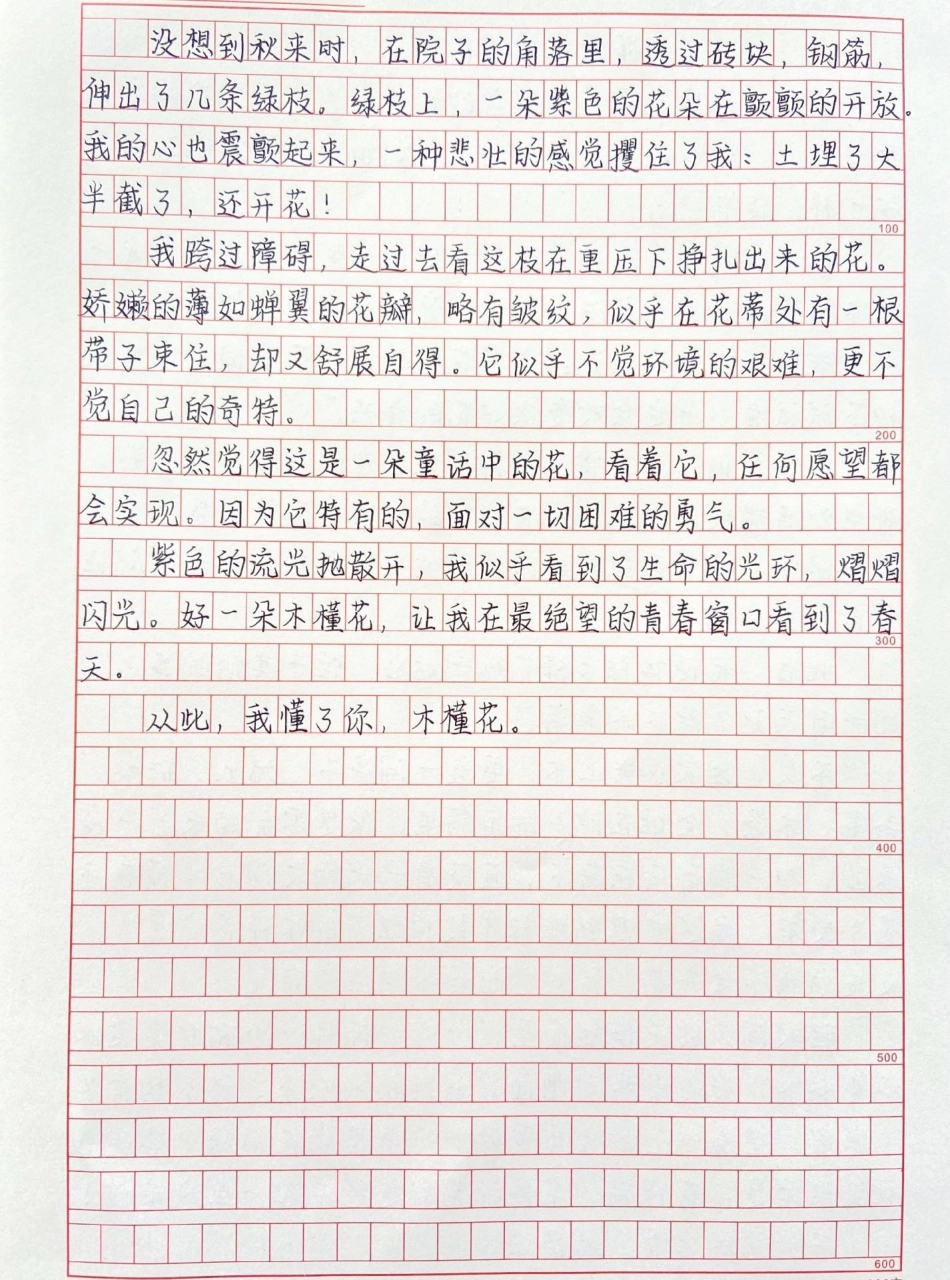 没想到秋来时，在院子的角落里，透过砖块，钢筋，
伸出了几条绿枝。绿枝上，一朵紫色的花朵在颤颤的开放。
我的心也震颤起来，一种悲壮的感觉攫住了我：土埋了大
半截了，还开花！
100
我跨过障碍，走过去看这枝在重压下挣扎出来的花。
娇嫩的薄如蝉翼的花瓣，略有皱纹，似乎在花蒂处有一根
带子束住，却又舒展自得。它似乎不觉环境的艰难，更不
觉自己的奇特。
200
忽然觉得这是一朵童话中的花，看着它，任何愿望都
会实现。因为它特有的，面对一切困难的勇气。
紫色的流光抛散开，我似乎看到了生命的光环，熠熠
闪光。好一朵木槿花，让我在最绝望的青春窗口看到了春
300
天。
从此，我懂了你，木槿花。
400
500
600